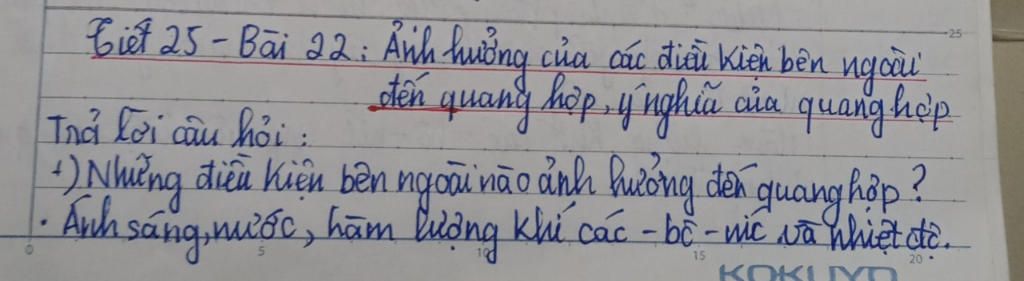 Tiết 25 - Bài 22: Ảnh hưởng của các điều kiện bên ngoài
đến quang hợp, ý nghĩa của quang hợp
Trả lời câu hỏi:
+) Những điều kiện bên ngoài nào ảnh hưởng đến quang hợp?
• Ánh sáng, nước, hàm lượng khí các-bô-níc và nhiệt độ.
0 5 10 15 20 25
KOKUYO